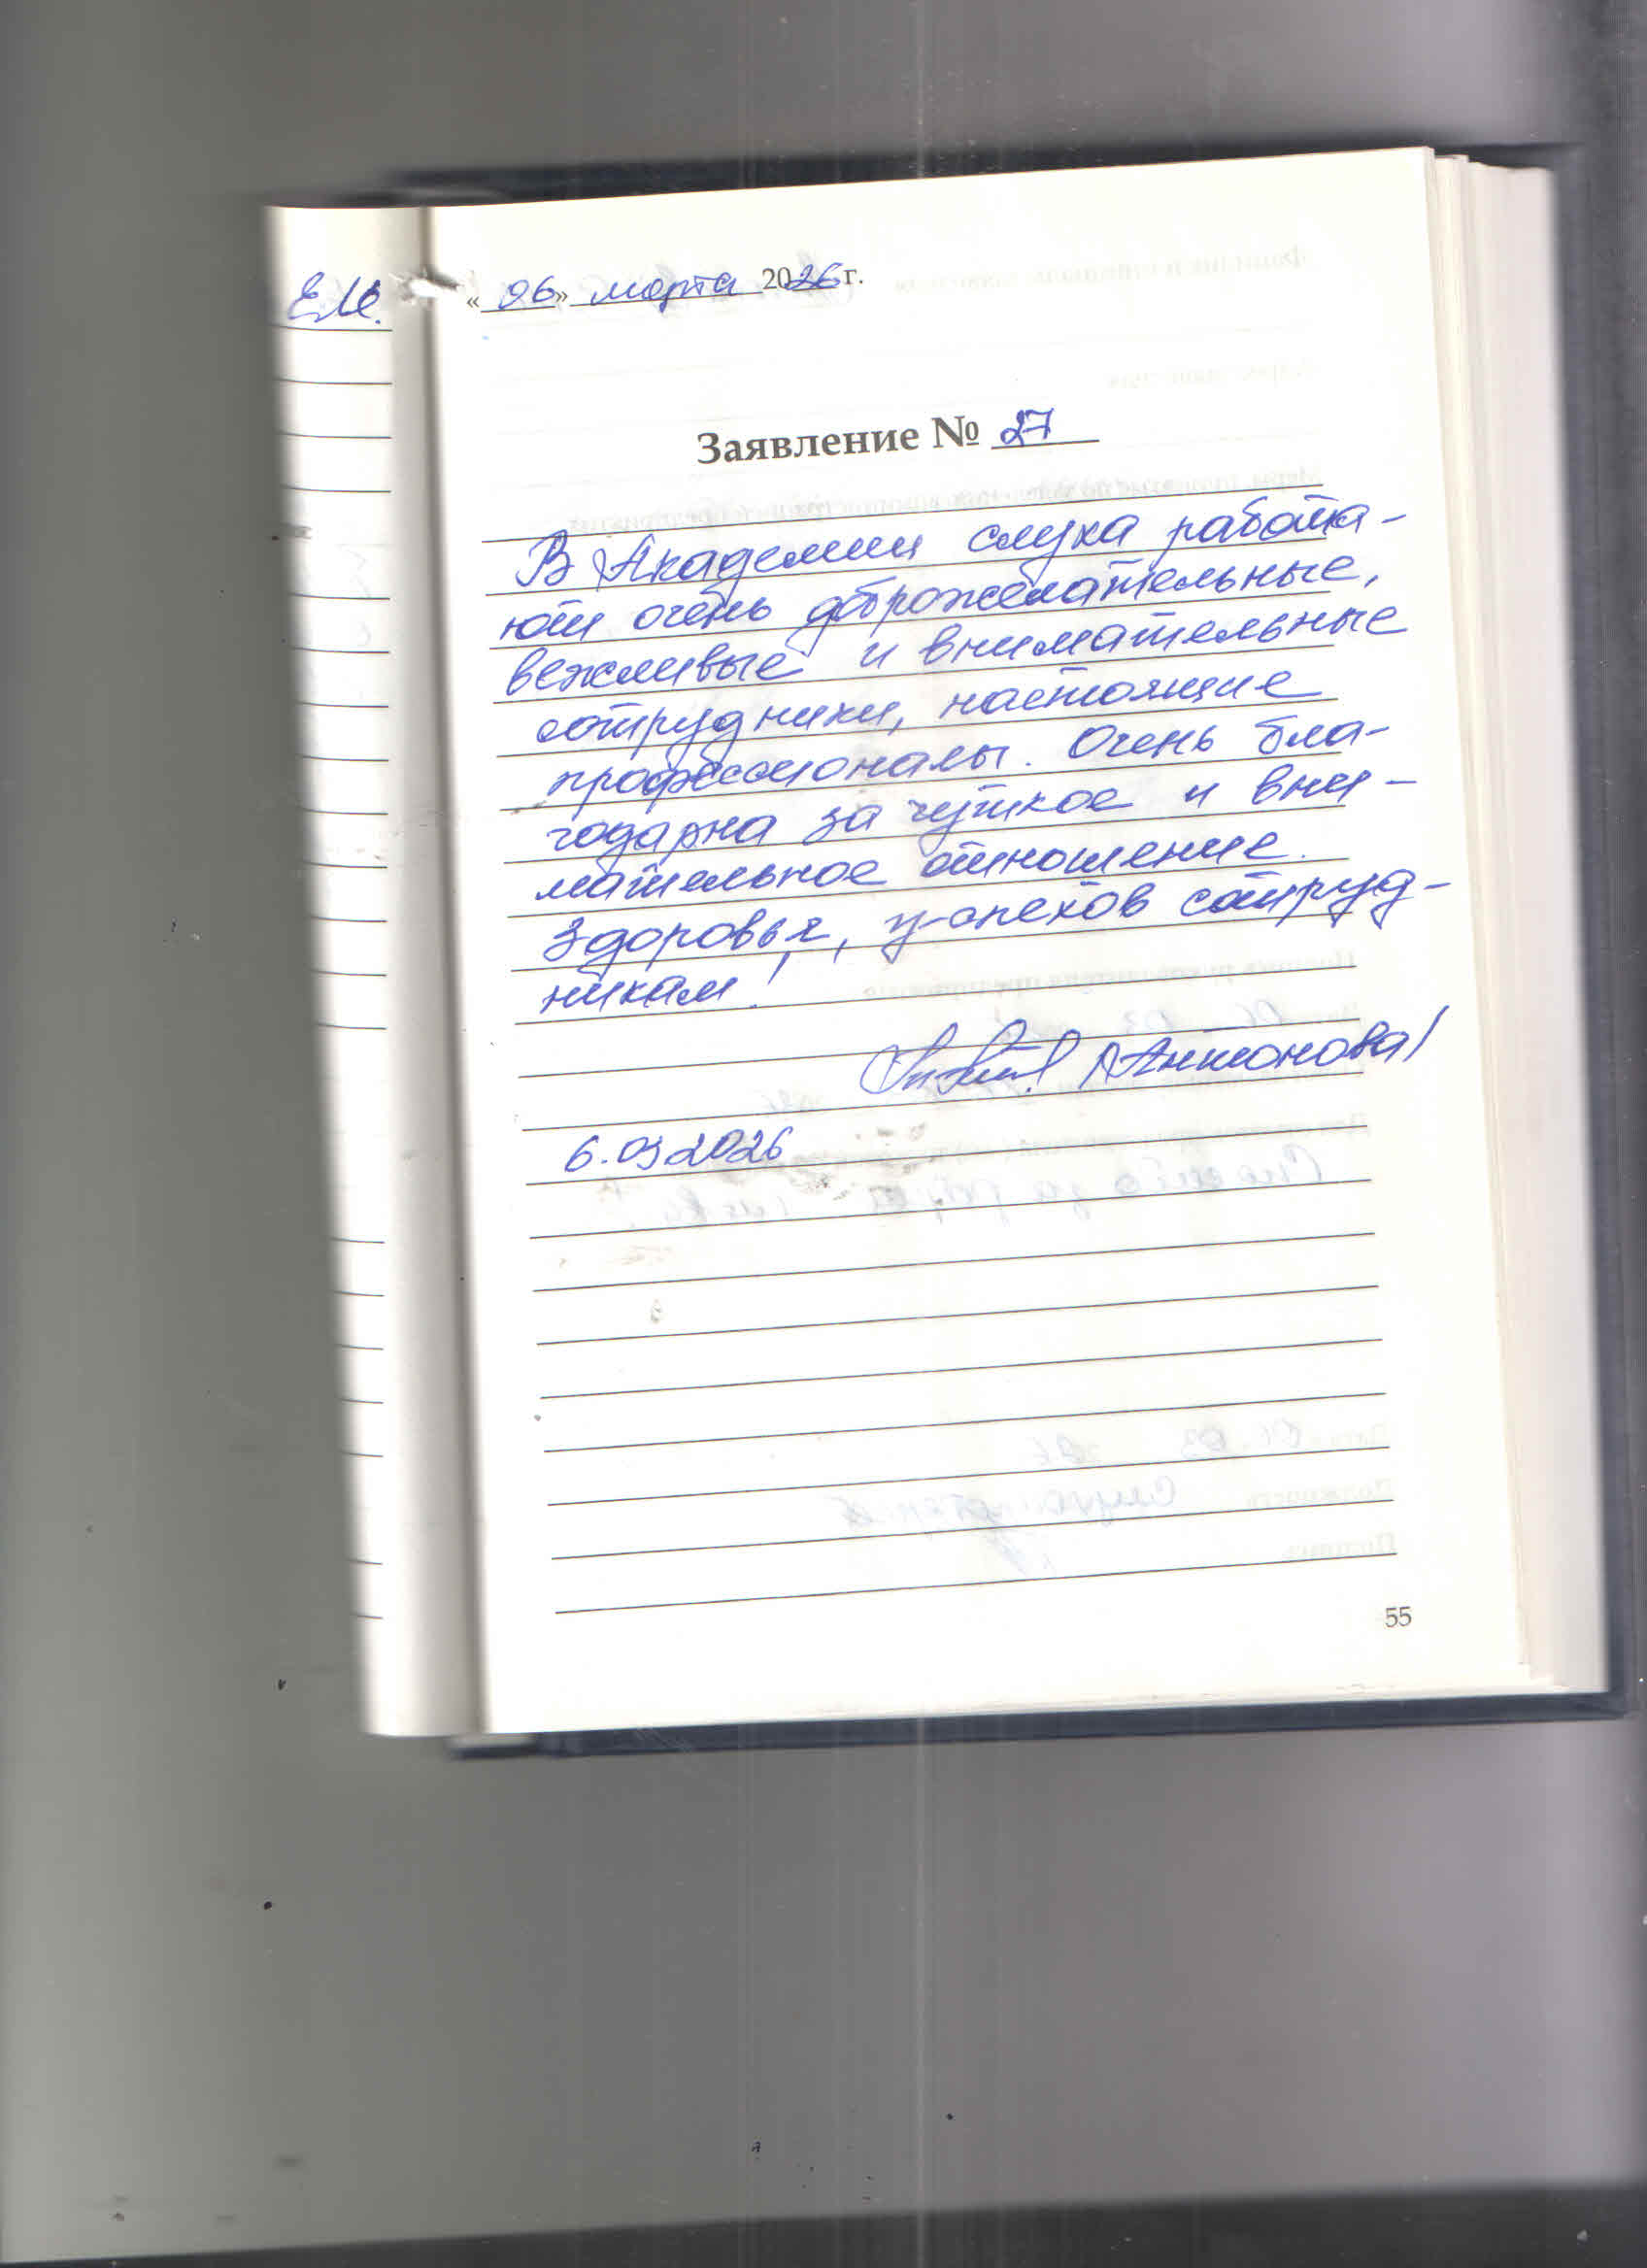 Е.М.
«06» марта 2026 г.
Заявление № 27
В Академии слуха работа-
ют очень доброжелательные,
вежливые и внимательные
сотрудники, настоящие
профессионалы. Очень бла-
годарна за чуткое и вни-
мательное отношение.
Здоровья, успехов сотруд-
никам!
/Антонова/
6.03.2026
55